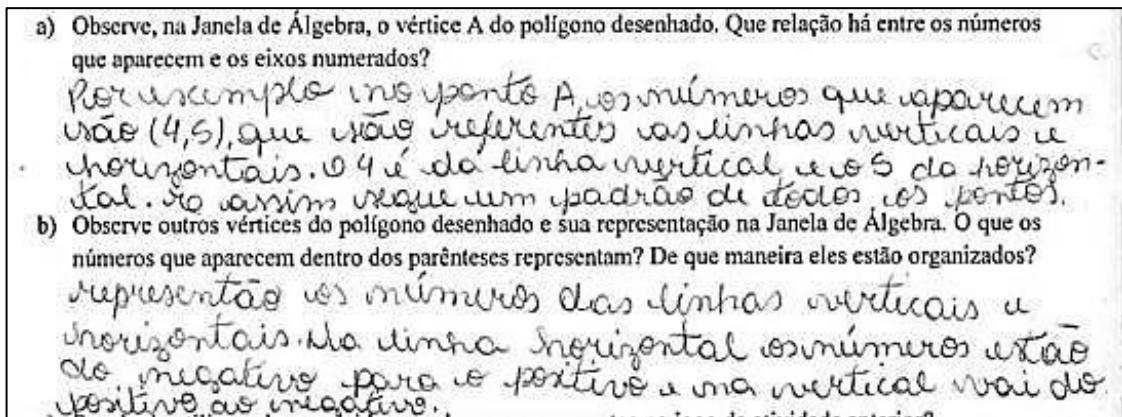 a) Observe, na Janela de Álgebra, o vértice A do polígono desenhado. Que relação há entre os números
que aparecem e os eixos numerados?
Por exemplo no ponto A, os números que aparecem
são (4,5), que são referentes as linhas verticais e
horizontais. O 4 é da linha vertical e o 5 da horizon-
tal. E assim segue um padrão de todos os pontos.
b) Observe outros vértices do polígono desenhado e sua representação na Janela de Álgebra. O que os
números que aparecem dentro dos parênteses representam? De que maneira eles estão organizados?
representão os números das linhas verticais e
horizontais. Na linha horizontal os números estão
do negativo para o positivo e na vertical vai do
positivo ao negativo.